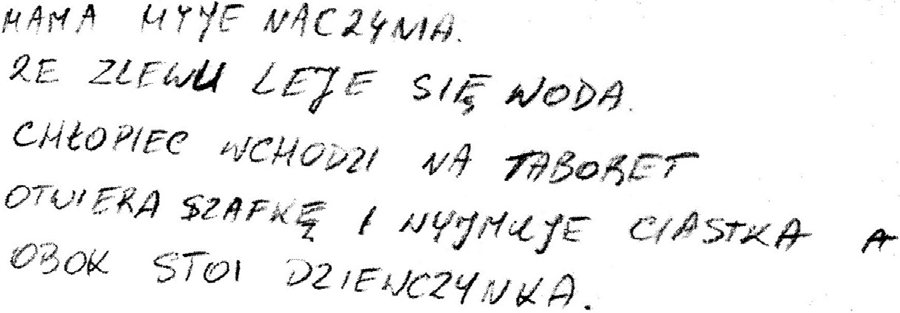 MAMA MYJE NACZYNIA.
ZE ZLEWU LEJE SIĘ WODA.
CHŁOPIEC WCHODZI NA TABORET
OTWIERA SZAFKĘ I WYJMUJE CIASTKA A
OBOK STOI DZIEWCZYNKA.